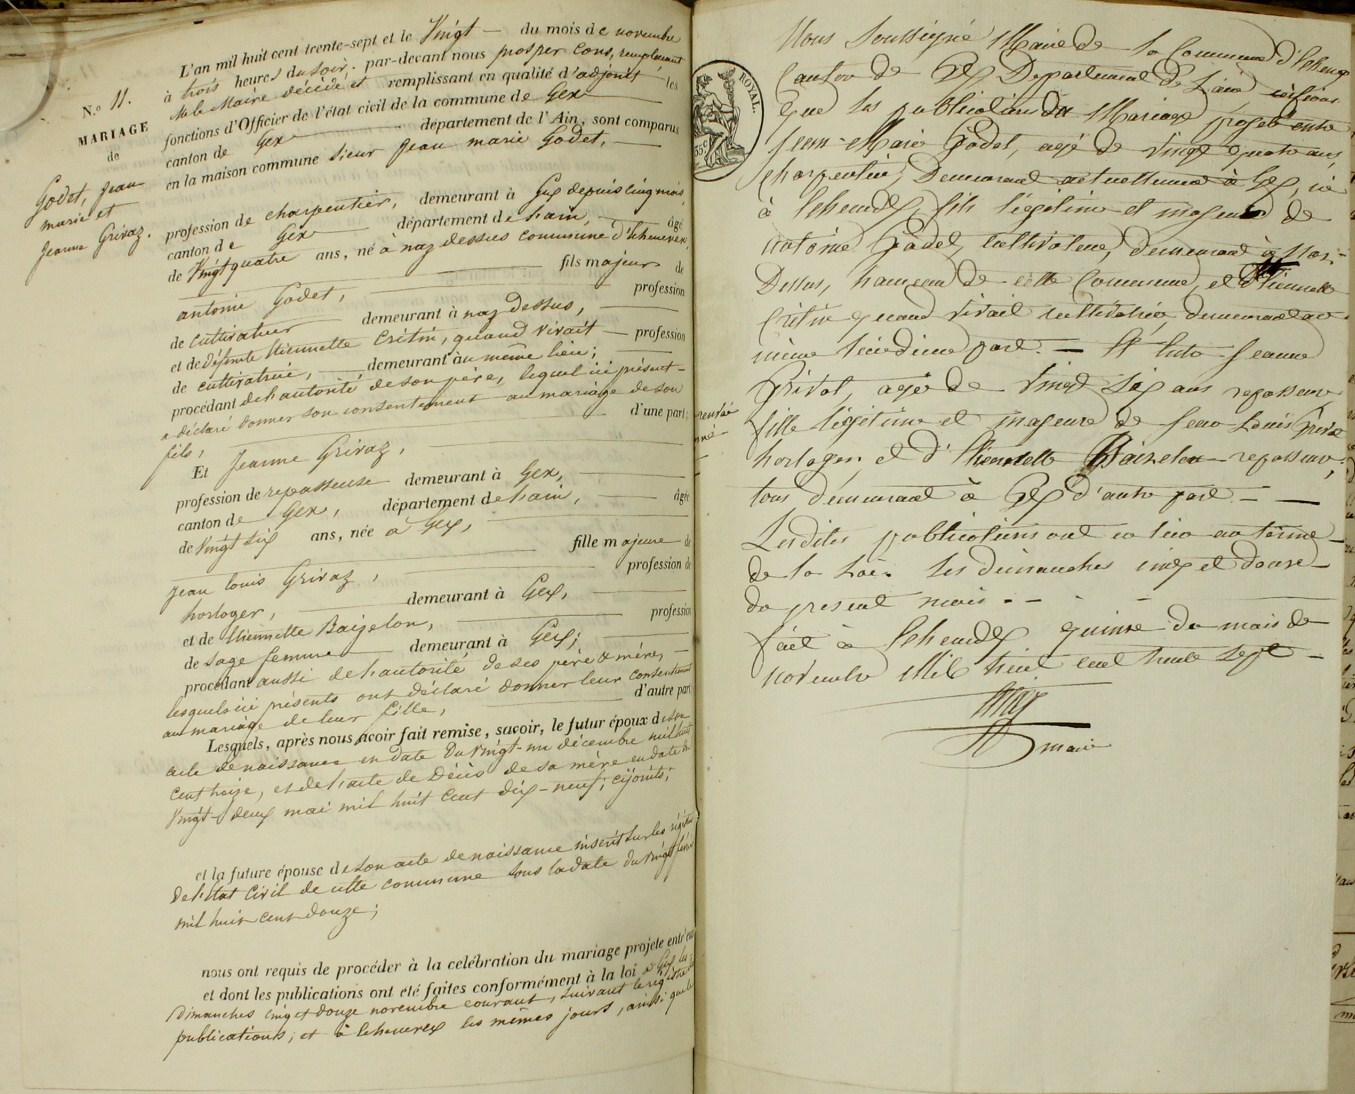 N.o 11.
MARIAGE
de
Godet, jean
marie et
Jeanne Grivaz.
L'an mil huit cent trente-sept et le Vingt — du mois de novembre
à trois heures du soir. par-devant nous prosper Cons, remplaçant
Mr le Maire décédé et remplissant en qualité d'adjoint les
fonctions d'Officier de l'état civil de la commune de Gex
canton de Gex département de l'Ain, sont comparus
en la maison commune Sieur Jean marie Godet,
profession de charpentier, demeurant à Gex depuis cinq mois,
canton de Gex département de L'ain, âgé
de Vingt quatre ans, né à naz dessus commune d'Echenevex,
fils majeur de
antoine Godet, profession
de cultivateur demeurant à naz dessus,
et de défunte Etiennette Crétin, quand vivait profession
de cultivatrice, demeurant au même lieu;
procédant de l'autorité de son père, lequel ici présent
a déclaré donner son consentement au mariage de son
fils, d'une part;
Et Jeanne Grivaz,
profession de repasseuse demeurant à Gex,
canton de Gex, département de L'ain, âgée
de Vingt Six ans, née à Gex,
fille majeure de
Jean Louis Grivaz, profession de
horloger, demeurant à Gex,
et de Etiennette Baizelon, profession
de Sage femme demeurant à Gex;
procédant aussi de l'autorité de ses père & mère,
lesquels ici présents ont déclaré donner leur consentement
au mariage de leur fille, d'autre part
Lesquels, après nous avoir fait remise, savoir, le futur époux de son
acte de naissance en date du Vingt-un décembre mil huit
cent treize, et de l'acte de Décès de sa mère en date du
Vingt-deux mai mil huit cent dix-neuf; cijoints;
et la future épouse de son acte de naissance inscrit sur les registres
de l'Etat Civil de cette commune sous la date du vingt février
mil huit cent douze;
nous ont requis de procéder à la célébration du mariage projeté entr'eux
et dont les publications ont été faites conformément à la loi à Gex les
Dimanches cinq et douze novembre courant, suivant le registre de
publications; et à Echenevex les mêmes jours, ainsi que le
ROYAL.
35c
Nous Soussigné Maire de la Commune d'Echenevex
Canton de Gex Departement de L'ain certifions
que les publications du Mariage projeté entre
Jean-Marie Godet, agé de Vingt quatre ans,
Charpentier, Demeurant actuellement à Gex, né
à Echenevex fils légitime et majeur de
antoine Godet cultivateur, demeurant à Naz-
Dessus, hameau de cette Commune, et Etiennette
Crétin quand vivait cultivatrice, demeurant au
même lieu d'une part. — Et Jeanne
Grivat, agée de Vingt Six ans repasseuse
fille légitime et majeure de Jean Louis Grivat
horloger et d'Etiennette Baizelon repasseuse,
tous demeurant à Gex d'autre part — —
Lesdites publications ont eu lieu au terme
de la Loi. les dimanches cinq et douze
du present mois. —
fait à Echenevex quinze du mois de
novembre Mil huit cent trente Sept —
maire